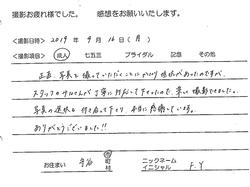 撮影お疲れ様でした。 感想をお願いいたします。
<撮影日時> 2019 年 9 月 16 日 (月)
<撮影項目> 成人 七五三 ブライダル 記念 その他
正直、写真を撮っていただくことに かなり 抵抗があったのですが、
スタッフの皆さんが丁寧に対応して下さったので、楽しく撮影できました。
写真の選択も 待って下さり 本当に感謝しています。
ありがとうございました!!
お住まい 市 町 村 ニックネーム イニシャル F.Y